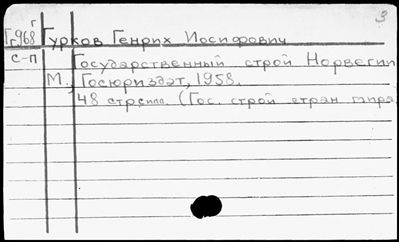 3
Г
Г968 Гурков Генрих Иосифович
с-п Государственный строй Норвегии
М., Госюриздат, 1958.
48 стр. (Гос. строй стран мира)